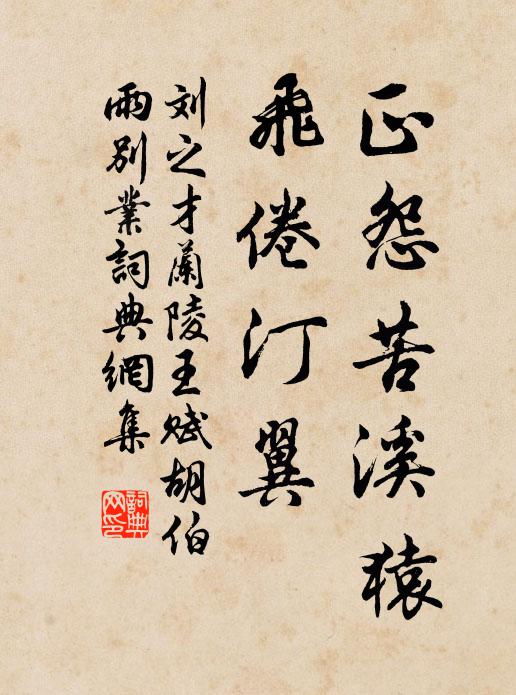 正怨苦溪猿
飛倦汀翼
刘之才蘭陵王赋胡伯
雨別業詞典網集
詞典
网印